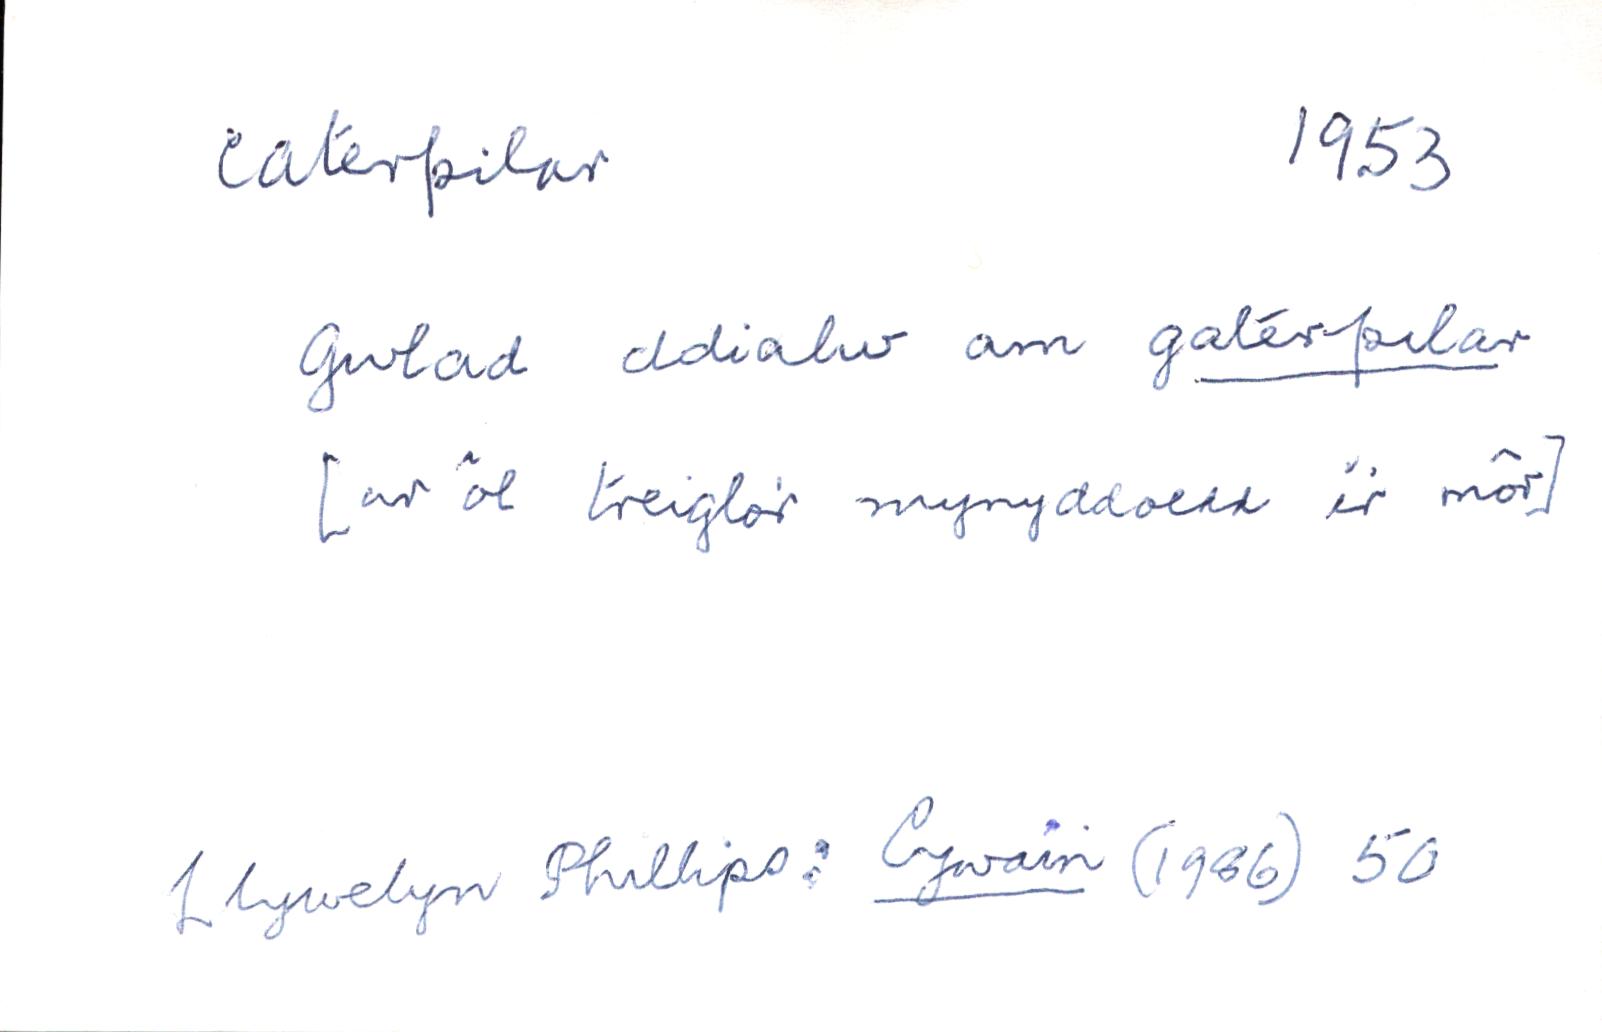 caterpilar 1953
Gwlad ddialw am gaterpilar
[ar ôl treiglo'r mynyddoedd i'r môr]
Llywelyn Phillips: Cywain (1986) 50